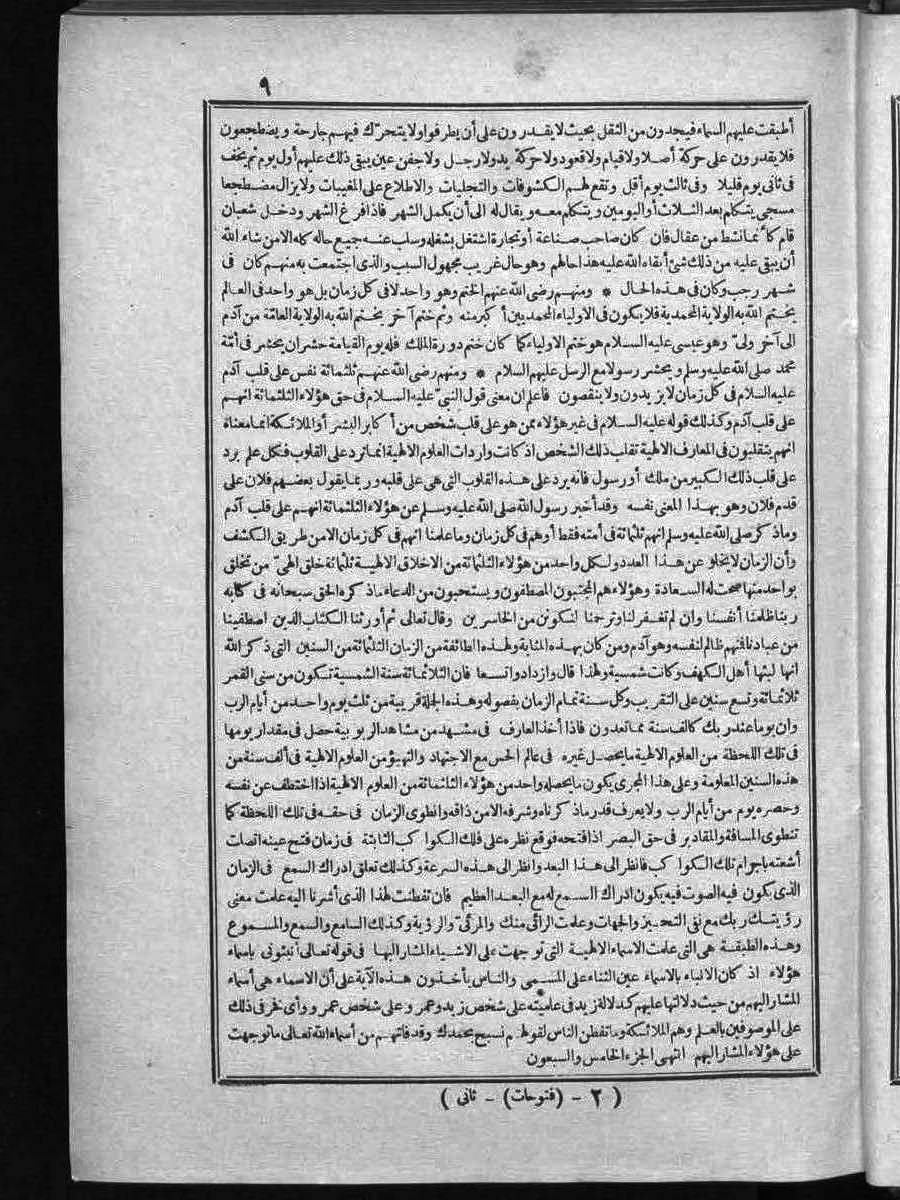 ٩
أطبقت عليهم السماء فيجدون من الثقل بحيث لا يقدرون على أن يطرفوا ولا يتحرّك فيهم جارحة ويضطجعون
فلا يقدرون على حركة أصلا ولا قيام ولا قعود ولا حركة يد ولا رجل ولا جفن عين يبقى ذلك عليهم أول يوم ثم يخف
فى ثانى يوم قليلا وفى ثالث يوم أقل وتقع لهم الكشوفات والتجليات والاطلاع على المغيبات ولا يزال مضطجعا
مسجى يتكلم بعد الثلاث أو اليومين ويتكلم معه ويقال له الى أن يكمل الشهر فاذا فرغ الشهر ودخل شعبان
قام كأنما نشط من عقال فان كان صاحب صناعة أو تجارة اشتغل بشغله وسلب عنه جميع حاله كله الامن شاء الله
أن يبقى عليه من ذلك شئ أبقاه الله عليه هذا حالهم وهو حال غريب مجهول السبب والذى اجتمعت به منهم كان فى
شهر رجب وكان فى هذه الحال * ومنهم رضى الله عنهم الختم وهو واحد لا فى كل زمان بل هو واحد فى العالم
يختم الله به الولاية المحمدية فلا يكون فى الاولياء المحمديين أكبر منه وثم ختم آخر يختم الله به الولاية العامّة من آدم
الى آخر ولىّ وهو عيسى عليه السلام هو ختم الاولياء كما كان ختم دورة الملك فله يوم القيامة حشران يحشر فى أمّة
محمد صلى الله عليه وسلم ويحشر رسولا مع الرسل عليهم السلام * ومنهم رضى الله عنهم ثلثمائة نفس على قلب آدم
عليه السلام فى كل زمان لا يزيدون ولا ينقصون فاعلم ان معنى قول النبىّ عليه السلام فى حق هؤلاء الثلثمائة انهم
على قلب آدم وكذلك قوله عليه السلام فى غير هؤلاء ممن هو على قلب شخص من أكابر البشر أو الملائكة انما معناه
انهم يتقلبون فى المعارف الالهية تقلب ذلك الشخص اذ كانت واردات العلوم الالهية انما ترد على القلوب فكل علم يرد
على قلب ذلك الكبير من ملك أو رسول فانه يرد على هذه القلوب التى هى على قلبه وربما يقول بعضهم فلان على
قدم فلان وهو بهذا المعنى نفسه وقد أخبر رسول الله صلى الله عليه وسلم عن هؤلاء الثلثمائة انهم على قلب آدم
وما ذكر صلى الله عليه وسلم انهم ثلثمائة فى أمته فقط أو هم فى كل زمان وما علمنا انهم فى كل زمان الامن طريق الكشف
وأن الزمان لا يخلو عن هذا العدد ولكل واحد من هؤلاء الثلثمائة من الاخلاق الالهية ثلثمائة خلق الهىّ من تخلق
بواحد منها صحت له السعادة وهؤلاء هم المجتبون المصطفون ويستحبون من الدعاء ما ذكره الحق سبحانه فى كتابه
ربنا ظلمنا أنفسنا وان لم تغفر لنا وترحمنا لنكونن من الخاسرين وقال تعالى ثم أورثنا الكتاب الذين اصطفينا
من عبادنا فمنهم ظالم لنفسه وهو آدم ومن كان بهذه المثابة ولهذه الطائفة من الزمان الثلثمائة من السنين التى ذكر الله
انها لبثها أهل الكهف وكانت شمسية ولهذا قال وازدادوا تسعا فان الثلاثمائة سنة الشمسية تكون من سنى القمر
ثلاثمائة وتسع سنين على التقريب وكل سنة تمام الزمان بفصوله وهذه الجملة قريبة من ثلث يوم واحد من أيام الرب
وان يوما عند ربك كالف سنة مما تعدون فاذا أخذ العارف فى مشهد من مشاهد الربوبية حصل فى مقدار يومها
فى تلك اللحظة من العلوم الالهية ما يحصل غيره فى عالم الحس مع الاجتهاد والتهيؤ من العلوم الالهية فى ألف سنة من
هذه السنين المعلومة وعلى هذا المجرى يكون ما يحصله واحد من هؤلاء الثلثمائة من العلوم الالهية اذا اختطف عن نفسه
وحصره يوم من أيام الرب ولا يعرف قدر ما ذكرناه وشرفه الامن ذاقه وانطوى الزمان فى حقه فى تلك اللحظة كما
تنطوى المسافة والمقادير فى حق البصر اذا فتحه فوقع نظره على فلك الكواكب الثابتة فى زمان فتح عينه اتصلت
أشعته باجرام تلك الكواكب فانظر الى هذا البعد وانظر الى هذه السرعة وكذلك تعلق ادراك السمع فى الزمان
الذى يكون فيه الصوت فيه يكون ادراك السمع له مع البعد العظيم فان تفطنت لهذا الذى أشرنا اليه علمت معنى
رؤيتك ربك مع نفى التحيز والجهات وعلمت الرائى منك والمرئىّ والرؤية وكذلك السامع والسمع والمسموع
وهذه الطبقة هى التى علمت الاسماء الالهية التى توجهت على الاشياء المشار اليها فى قوله تعالى أنبئونى باسماء
هؤلاء اذ كان الانباء بالاسماء عين الثناء على المسمى والناس يأخذون هذه الآية على أنّ الاسماء هى أسماء
المشار اليهم من حيث دلالتها عليهم كدلالة زيد فى علميته على شخص زيد وعمرو على شخص عمرو وأى فخر فى ذلك
على الموصوفين بالعلم وهم الملائكة وما تفطن الناس لقولهم نسبح بحمدك وقد فاتهم من أسماء الله تعالى ما توجهت
على هؤلاء المشار اليهم انتهى الجزء الخامس والسبعون
( ٢ - (فتوحات) - ثانى )